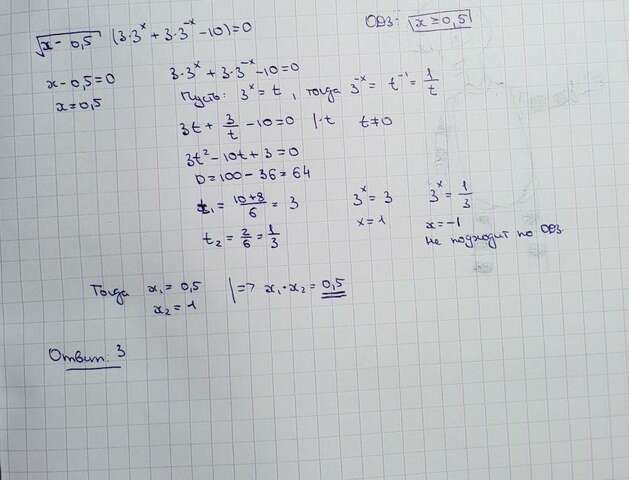 √(x - 0,5) (3·3ˣ + 3·3⁻ˣ - 10) = 0
ОДЗ: x ≥ 0,5
x - 0,5 = 0
x = 0,5
3·3ˣ + 3·3⁻ˣ - 10 = 0
Пусть: 3ˣ = t, тогда 3⁻ˣ = t⁻¹ = 1/t
3t + 3/t - 10 = 0 |·t t ≠ 0
3t² - 10t + 3 = 0
D = 100 - 36 = 64
t₁ = (10+8)/6 = 3
t₂ = 2/6 = 1/3
3ˣ = 3
x = 1
3ˣ = 1/3
x = -1
не подходит по ОДЗ.
Тогда x₁ = 0,5 |=> x₁·x₂ = 0,5
x₂ = 1
Ответ: 3